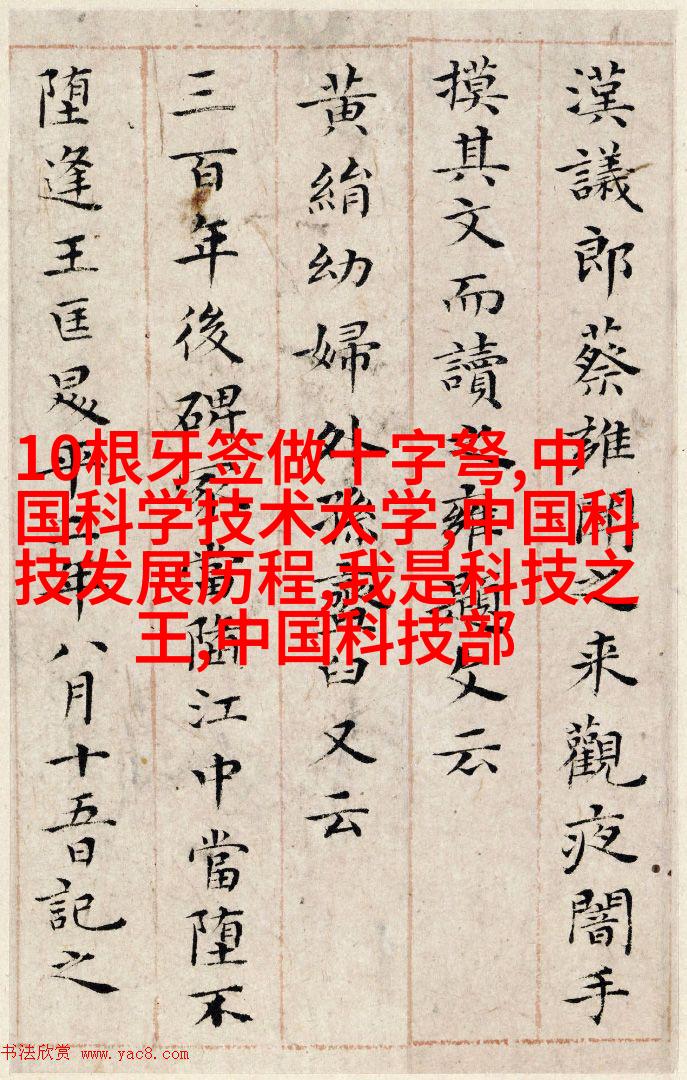 漢議郎蔡雍聞之来觀夜闇手
摸其文而讀之雍題文云
黄絹幼婦外孫齏臼又云
三百年後碑冢當堕江中當堕不
堕逢王匡昇平二年八月十五日記之
10根牙签做十字弩,中
国科学技术大学,中国科
技发展历程,我是科技之
王,中国科技部
书法欣赏 www.yac8.com